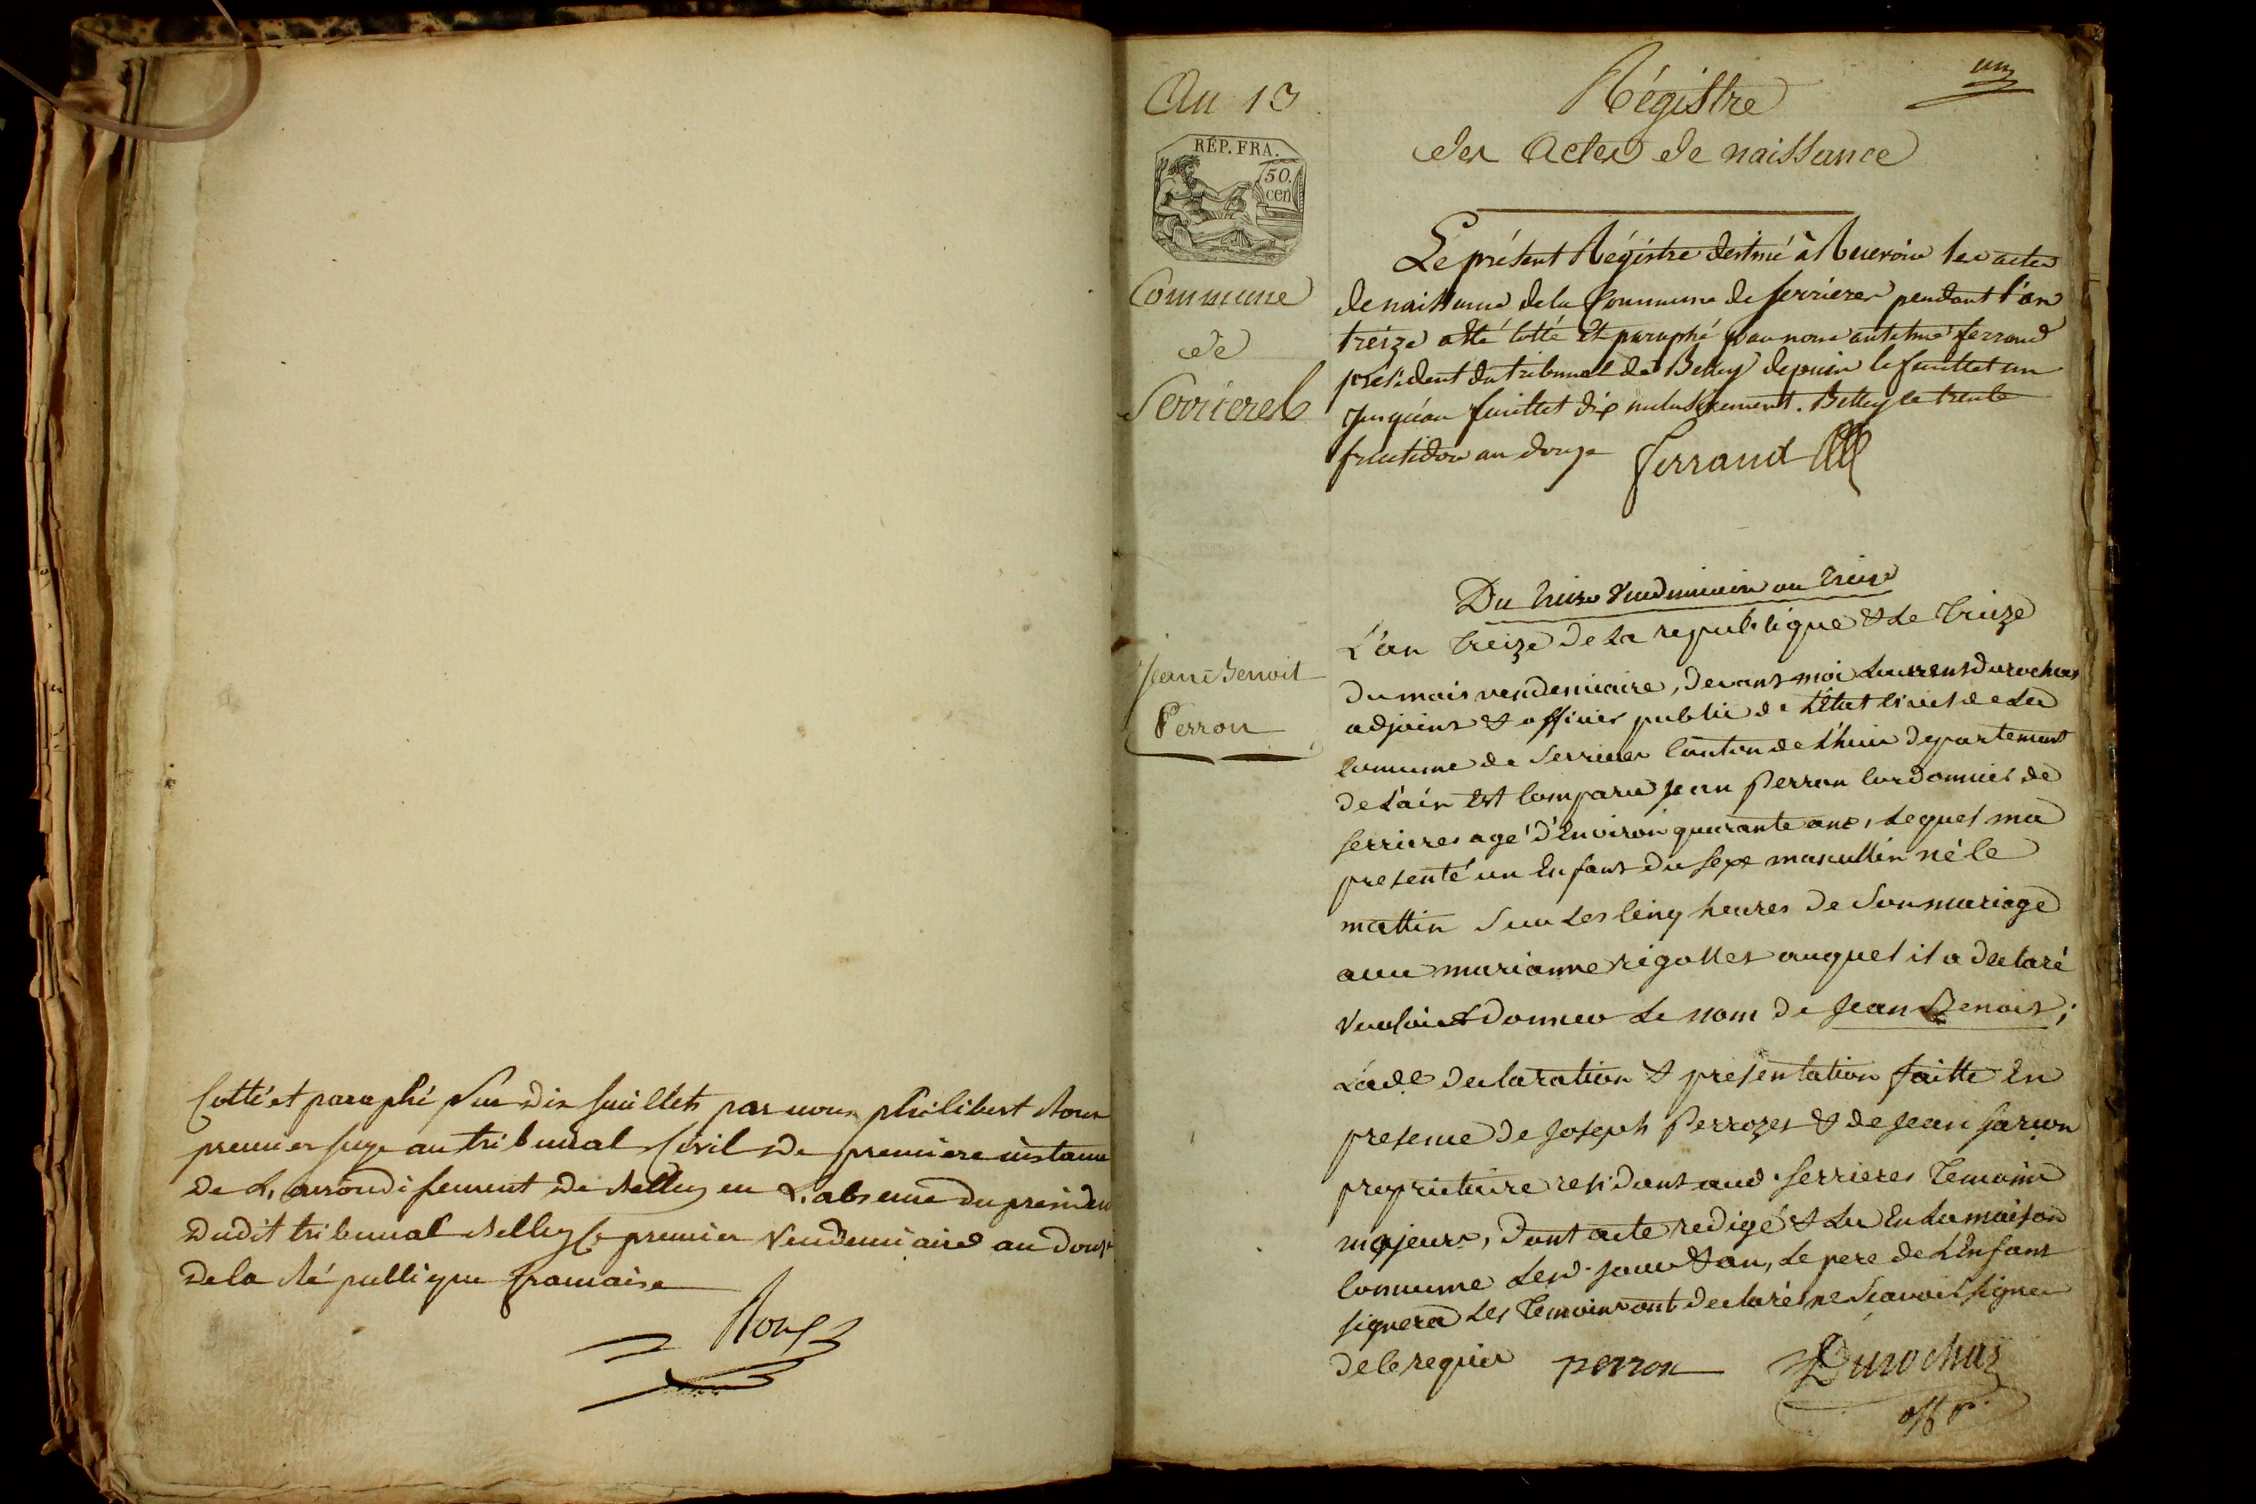 Cotté et paraphé sur dix feuillets par nous philibert Roux
premier juge au tribunal Civil de premiere instance
de L'arrondissement de Belley en L'absence du president
dudit tribunal Belley le premier Vendemiaire an douze
de la République francaise
Roux
un
An 13
RÉP. FRA.
50.
cen
Commune
de
Serrieres
Régistre
des Actes de naissance
Le présent Régistre destiné à Recevoir les actes
de naissance de la Commune de serrieres pendant l'an
treize a été Cotté Et paraphé par nous antelme ferrand
président du tribunal de Belley depuis le feuillet un
jusqu'au feuillet dix inclusivement. Belley le trente
fructidor an douze ferrand
Du treize Vendemiaire an treize
Jean Benoit
Perron
L'an treize de la republique & le treize
du mois vendemiaire, devant moi Laurent Durochas
adjoint & officier public de L'Etat Civil de La
Commune de Serrieres Canton de Lhuis departement
de L'ain Est Comparu jean Perron Cordonnier de
serrieres agé d'Environ quarante ans, Lequel ma
presenté un Enfant du sexe masculin né le
mattin sur Les Cinq heures de Son mariage
avec marianne rigollet auquel il a declaré
Vouloir donner Le nom de Jean Benoit;
La de declaration & presentation faitte En
presence de Joseph Perrozet & de jean
proprietaire residant aud. serrieres temoins
majeurs, Dont acte redigé & Lu En La maison
Commune Lesd. jour & an, Le pere de L'Enfant
signera Les temoins ont declarés ne Scavoir signer
de ce requis perron Durochas
off. p.